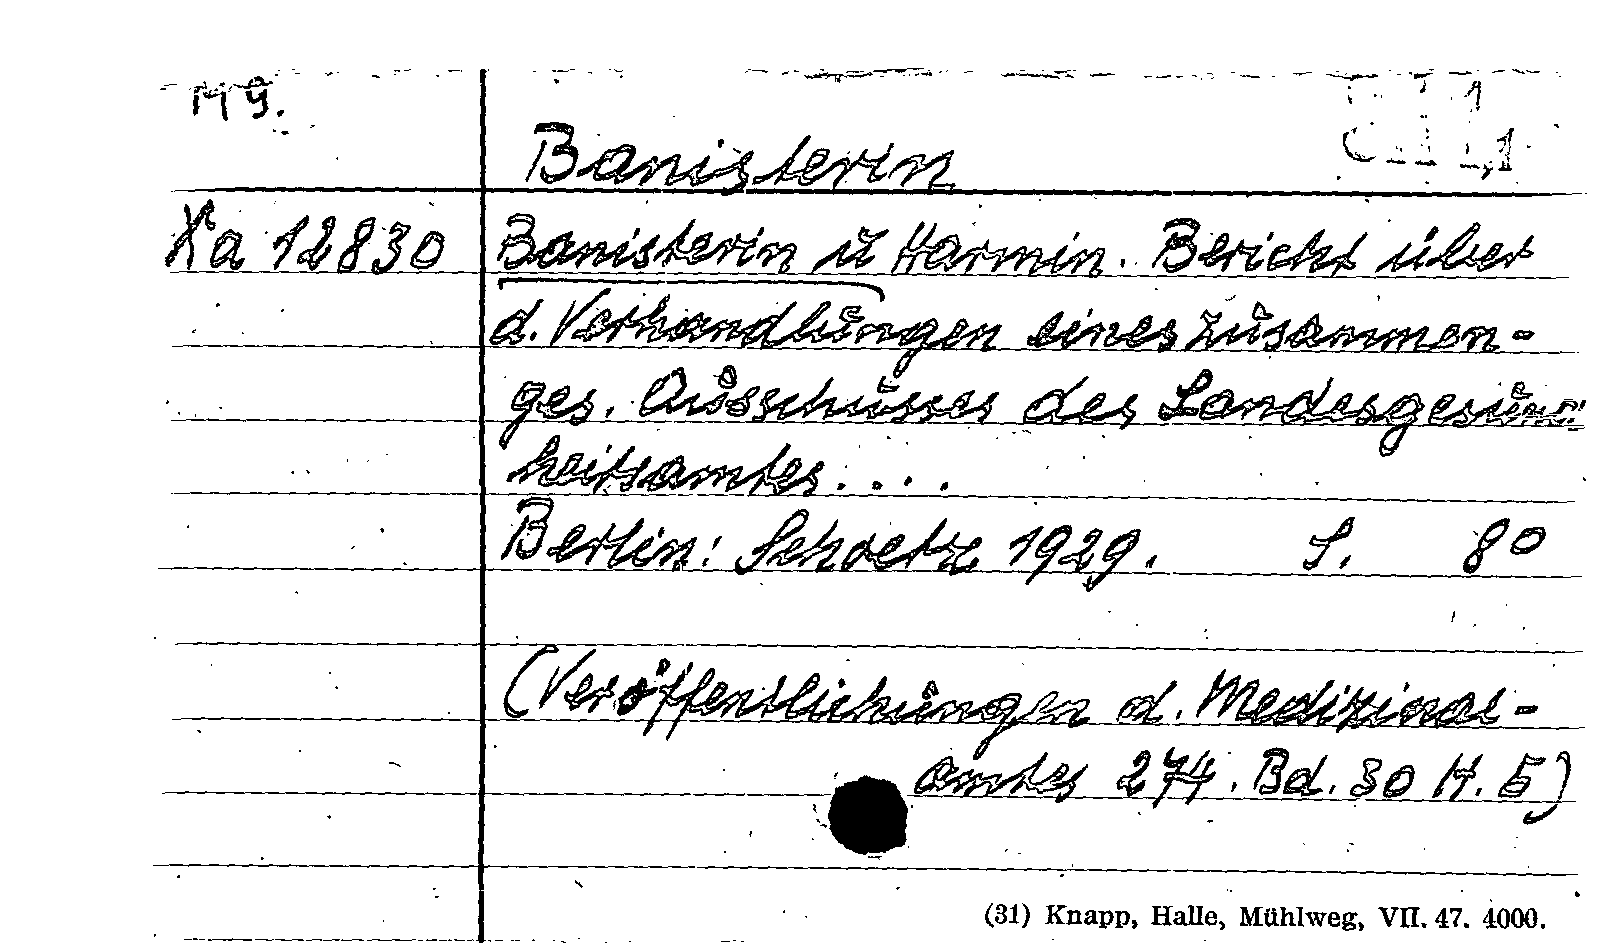 Banisterin
Xa 12830 Banisterin u Harmin. Bericht über
d. Verhandlungen eines zusammen-
ges. Ausschusses des Landesgesund
heitsamtes....
Berlin: Schoetz 1929. S. 8⁰
(Veröffentlichungen d. Medizinal-
amtes 274. Bd. 30 H. 5)
(31) Knapp, Halle, Mühlweg, VII. 47. 4000.